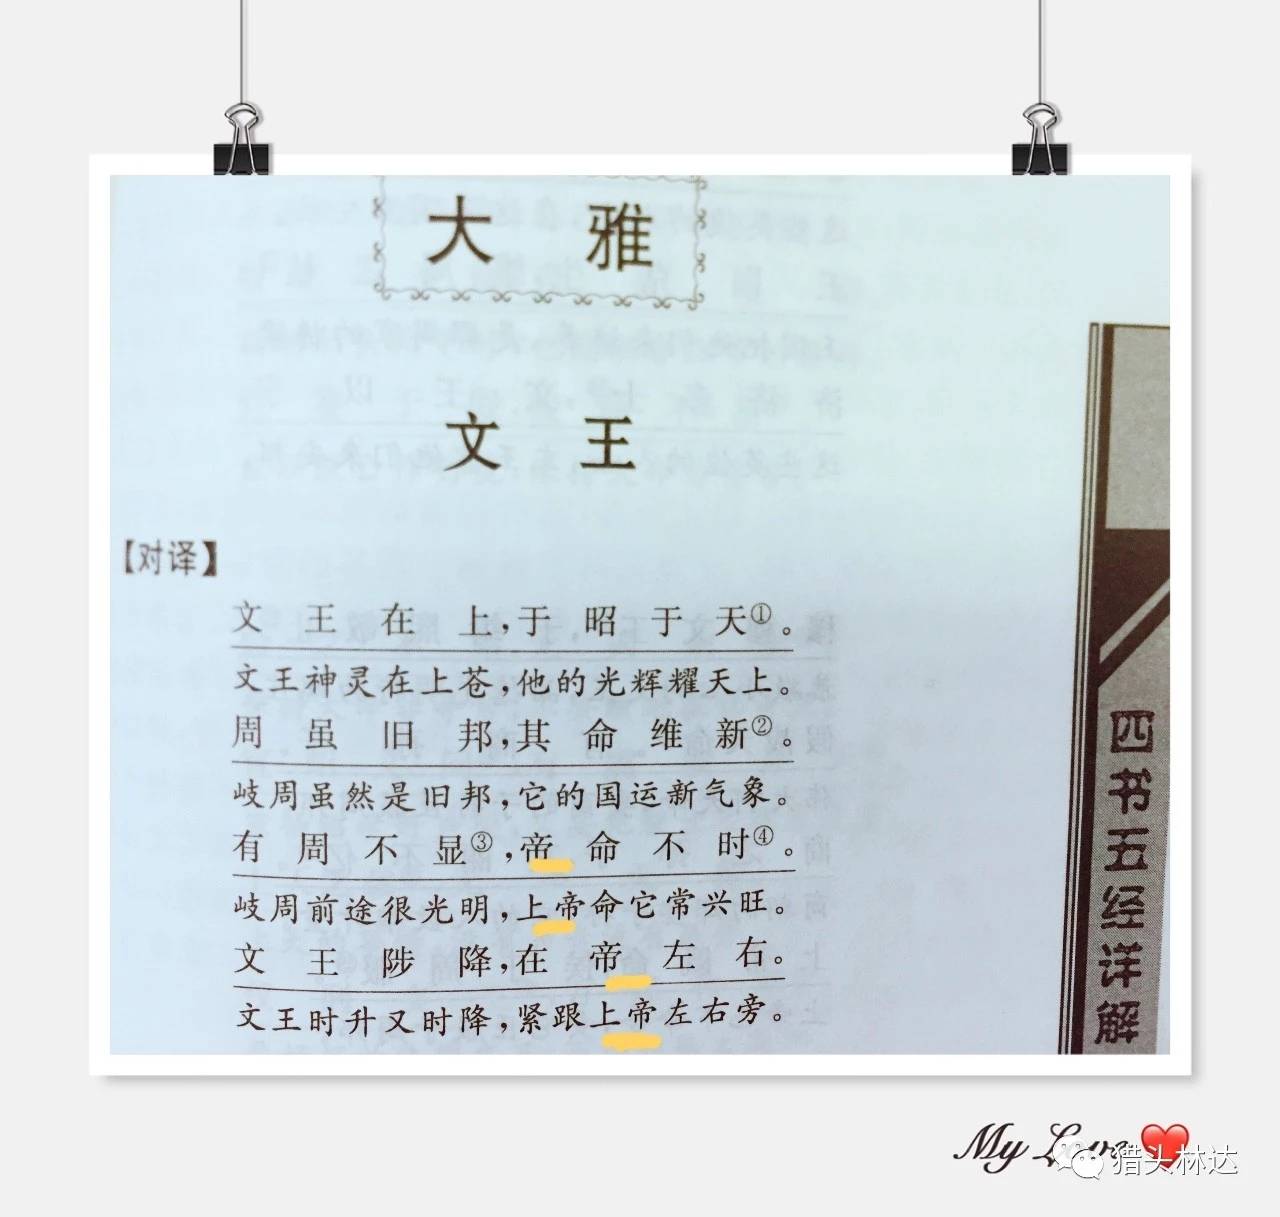 大雅
文王
【对译】
文王在上,于昭于天①。
文王神灵在上苍,他的光辉耀天上。
周虽旧邦,其命维新②。
岐周虽然是旧邦,它的国运新气象。
有周不显③,帝命不时④。
岐周前途很光明,上帝命它常兴旺。
文王陟降,在帝左右。
文王时升又时降,紧跟上帝左右旁。
四书五经详解
My Love
猎头林达